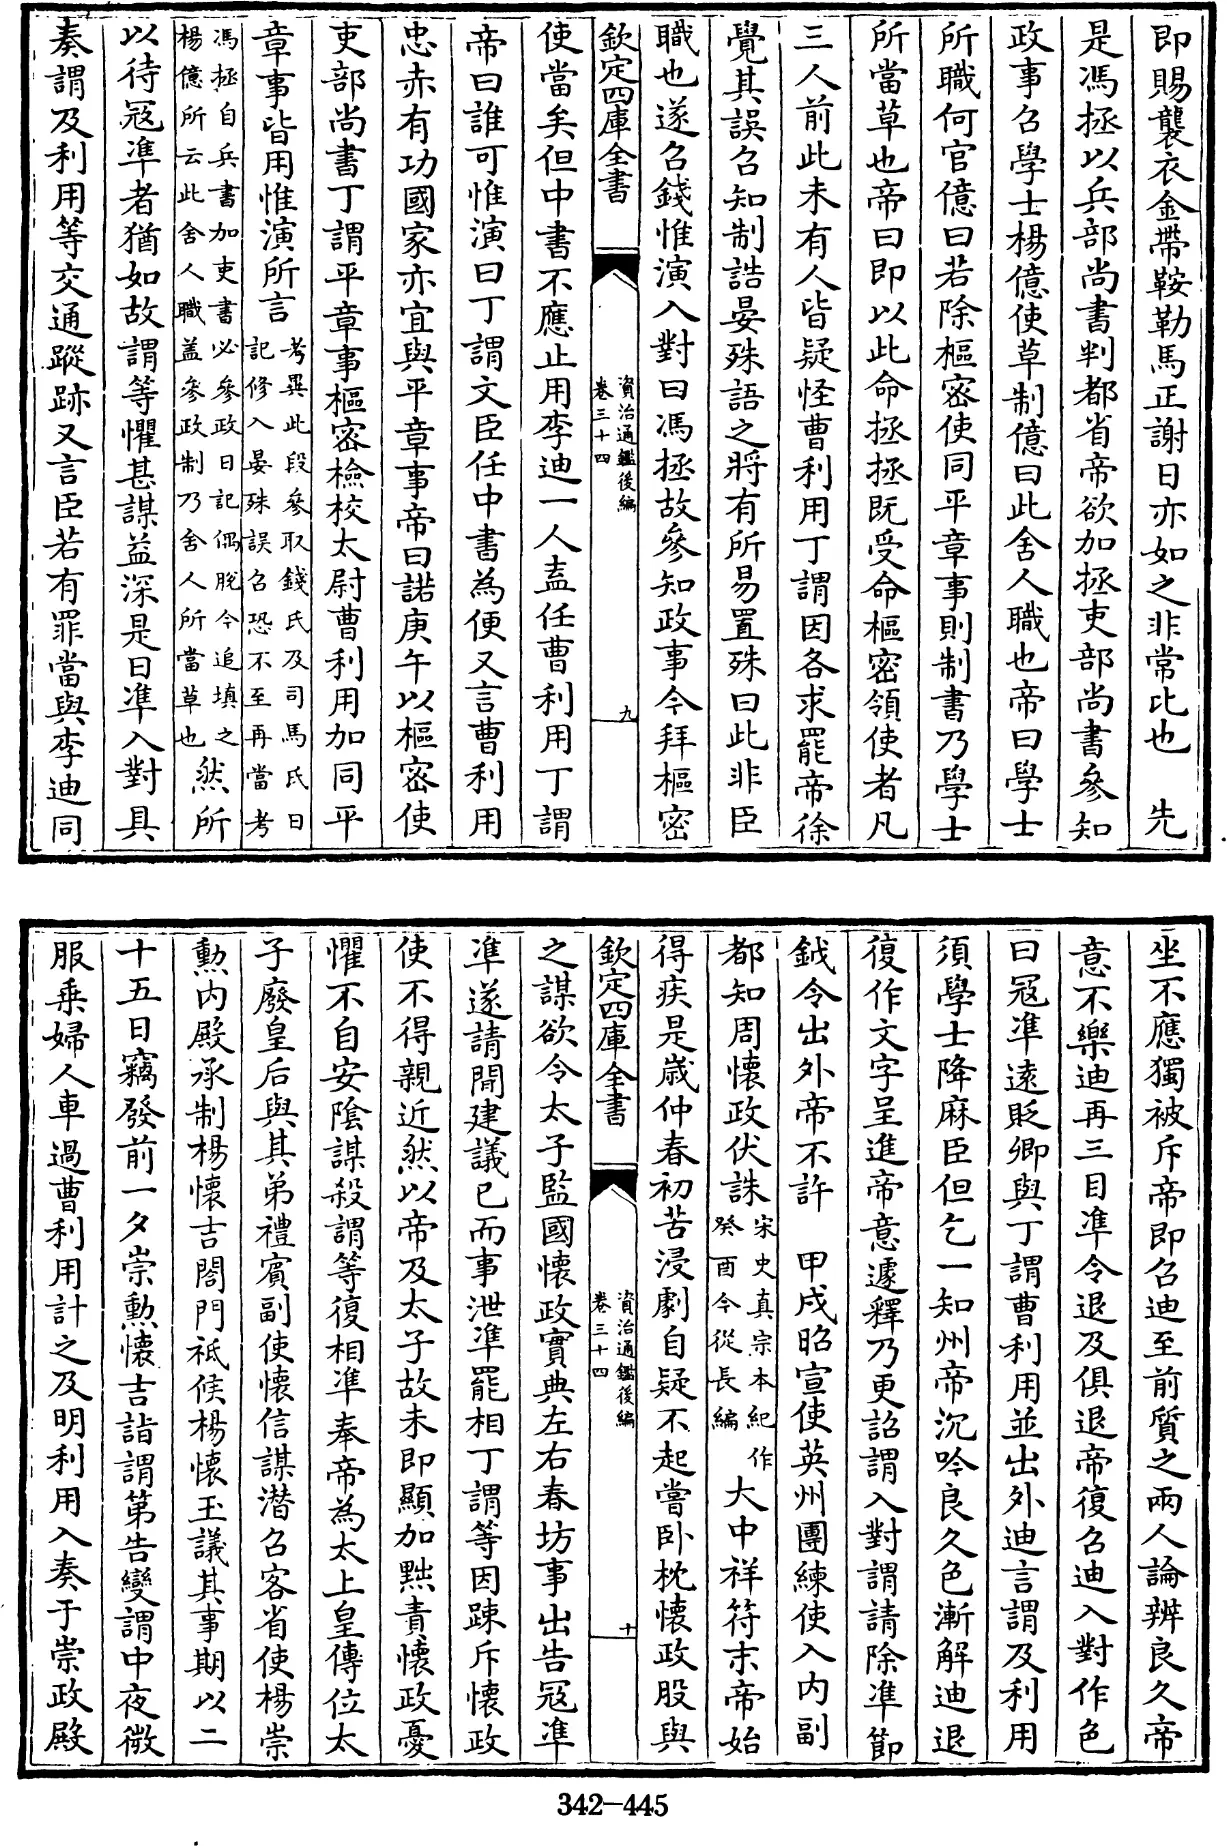 即賜襲衣金帶鞍勒馬正謝日亦如之非常比也　先
是馮拯以兵部尚書判都省帝欲加拯吏部尚書參知
政事召學士楊億使草制億曰此舍人職也帝曰學士
所職何官億曰若除樞密使同平章事則制書乃學士
所當草也帝曰即以此命拯拯既受命樞密領使者凡
三人前此未有人皆疑怪曹利用丁謂因各求罷帝徐
覺其誤召知制誥晏殊語之將有所易置殊曰此非臣
職也遂召錢惟演入對曰馮拯故參知政事今拜樞密
欽定四庫全書
資治通鑑後編
卷三十四
九
使當矣但中書不應止用李迪一人盍任曹利用丁謂
帝曰誰可惟演曰丁謂文臣任中書為便又言曹利用
忠赤有功國家亦宜與平章事帝曰諾庚午以樞密使
吏部尚書丁謂平章事樞密檢校太尉曹利用加同平
章事皆用惟演所言
考異此段參取錢氏及司馬氏日
記修入晏殊誤召恐不至再當考
馮拯自兵書加吏書必參政日記偶脫今追填之
楊億所云此舍人職蓋參政制乃舍人所當草也
然所
以待冦準者猶如故謂等懼甚謀益深是日準入對具
奏謂及利用等交通蹤跡又言臣若有罪當與李迪同
坐不應獨被斥帝即召迪至前質之兩人論辨良久帝
意不樂迪再三目準令退及俱退帝復召迪入對作色
曰冦準遠貶卿與丁謂曹利用並出外迪言謂及利用
須學士降麻臣但乞一知州帝沉吟良久色漸解迪退
復作文字呈進帝意遽釋乃更詔謂入對謂請除準節
鉞令出外帝不許　甲戌昭宣使英州團練使入內副
都知周懷政伏誅
宋史真宗本紀作
癸酉今從長編
大中祥符末帝始
得疾是歲仲春初苦浸劇自疑不起嘗臥枕懷政股與
欽定四庫全書
資治通鑑後編
卷三十四
十
之謀欲令太子監國懷政實典左右春坊事出告冦準
準遂請間建議已而事泄準罷相丁謂等因疎斥懷政
使不得親近然以帝及太子故未即顯加黜責懷政憂
懼不自安陰謀殺謂等復相準奉帝為太上皇傳位太
子廢皇后與其弟禮賓副使懷信謀潜召客省使楊崇
勲內殿承制楊懷吉閤門祗候楊懷玉議其事期以二
十五日竊發前一夕崇勲懷吉詣謂第告變謂中夜微
服乗婦人車過曹利用計之及明利用入奏于崇政殿
342-445